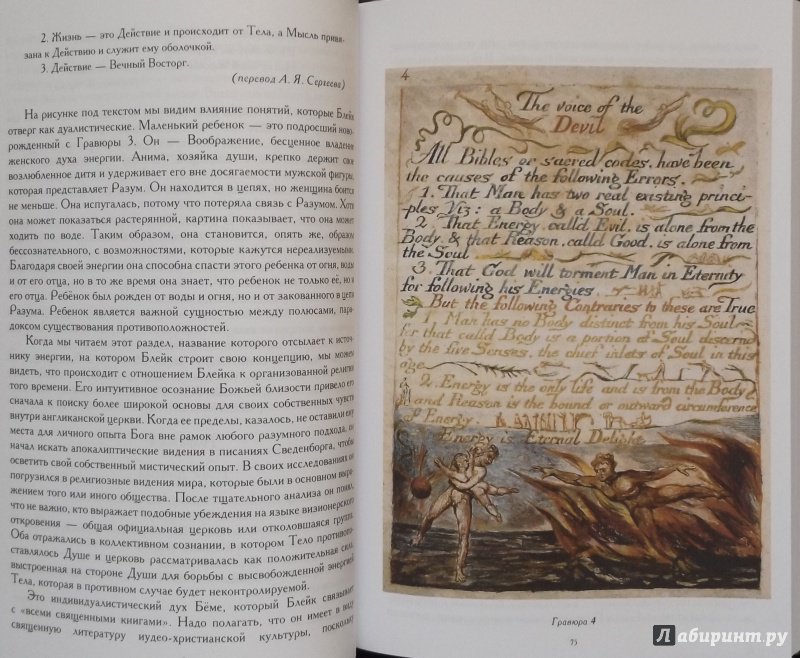 2. Жизнь — это Действие и происходит от Тела, а Мысль привя-
зана к Действию и служит ему оболочкой.
3. Действие — Вечный Восторг.
(перевод А. Я. Сергеева)
На рисунке под текстом мы видим влияние понятий, которые Блейк
отверг как дуалистические. Маленький ребенок — это подросший ново-
рожденный с Гравюры 3. Он — Воображение, бесценное владение
женского духа энергии. Анима, хозяйка души, крепко держит свое
возлюбленное дитя и удерживает его вне досягаемости мужской фигуры,
которая представляет Разум. Он находится в цепях, но женщина боится
не меньше. Она испугалась, потому что потеряла связь с Разумом. Хотя
она может показаться растерянной, картина показывает, что она может
ходить по воде. Таким образом, она становится, опять же, образом
бессознательного, с возможностями, которые кажутся нереализуемыми.
Благодаря своей энергии она способна спасти этого ребенка от огня, воды
и от его отца, но в то же время она знает, что ребенок не только её, но и
его отца. Ребёнок был рожден от воды и огня, но и от закованного в цепи
Разума. Ребенок является важной сущностью между полюсами, пара-
доксом существования противоположностей.
Когда мы читаем этот раздел, название которого отсылает к источ-
нику энергии, на котором Блейк строит свою концепцию, мы можем
видеть, что происходит с отношением Блейка к организованной религии
того времени. Его интуитивное осознание Божьей близости привело его
сначала к поиску более широкой основы для своих собственных чувств
внутри англиканской церкви. Когда ее пределы, казалось, не оставили ему
места для личного опыта Бога вне рамок любого разумного подхода, он
начал искать апокалиптические видения в писаниях Сведенборга, чтобы
осветить свой собственный мистический опыт. В своих исследованиях он
погрузился в религиозные видения мира, которые были в основном выра-
жением того или иного общества. После тщательного анализа он понял,
что не важно, кто выражает подобные убеждения на языке визионерского
откровения — общая официальная церковь или отколовшаяся группа.
Оба отражались в коллективном сознании, в котором Тело противопо-
ставлялось Душе и церковь рассматривалась как положительная сила,
выстроенная на стороне Души для борьбы с высвобожденной энергией
Тела, которая в противном случае будет неконтролируемой.
Это индивидуалистический дух Бёме, который Блейк связывает
с «всеми священными книгами». Надо полагать, что он имеет в виду
священную литературу иудео-христианской культуры, поскольку
4
The voice of the
Devil
All Bibles or sacred codes. have been
the causes of the following Errors.
1. That Man has two real existing princi-
ples Viz: a Body & a Soul.
2. That Energy. calld Evil. is alone from the
Body. & that Reason. calld Good. is alone from
the Soul
3. That God will torment Man in Eternity
for following his Energies.
But the following Contraries to these are True
1. Man has no Body distinct from his Soul
for that calld Body is a portion of Soul discernd
by the five Senses. the chief inlets of Soul in this
age
2. Energy is the only life and is from the Body
and Reason is the bound or outward circumference
of Energy.
Energy is Eternal Delight
Гравюра 4
75
лабиринт.ру